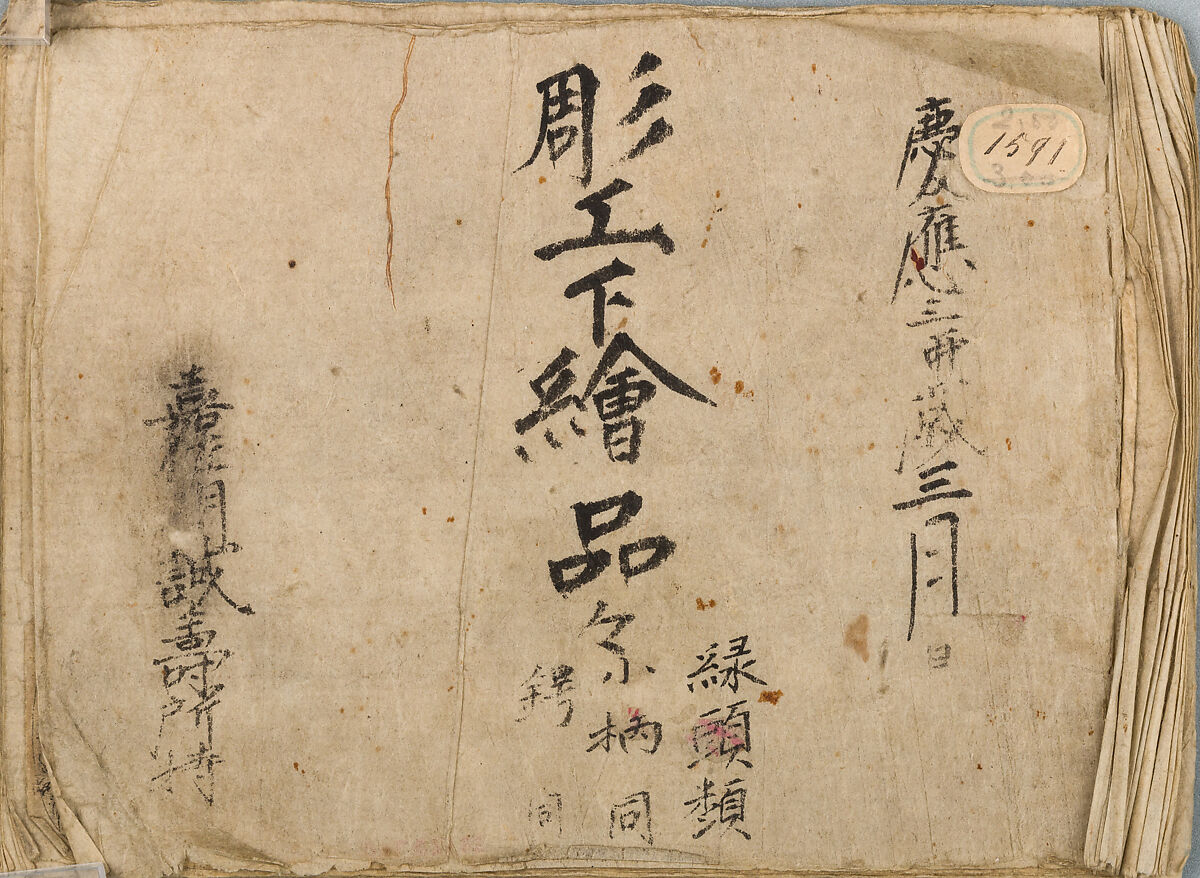 慶應三卯歳三月 日
1591
彫工下繪品々
縁頭類
柄 同
鍔 同
誠壽所持